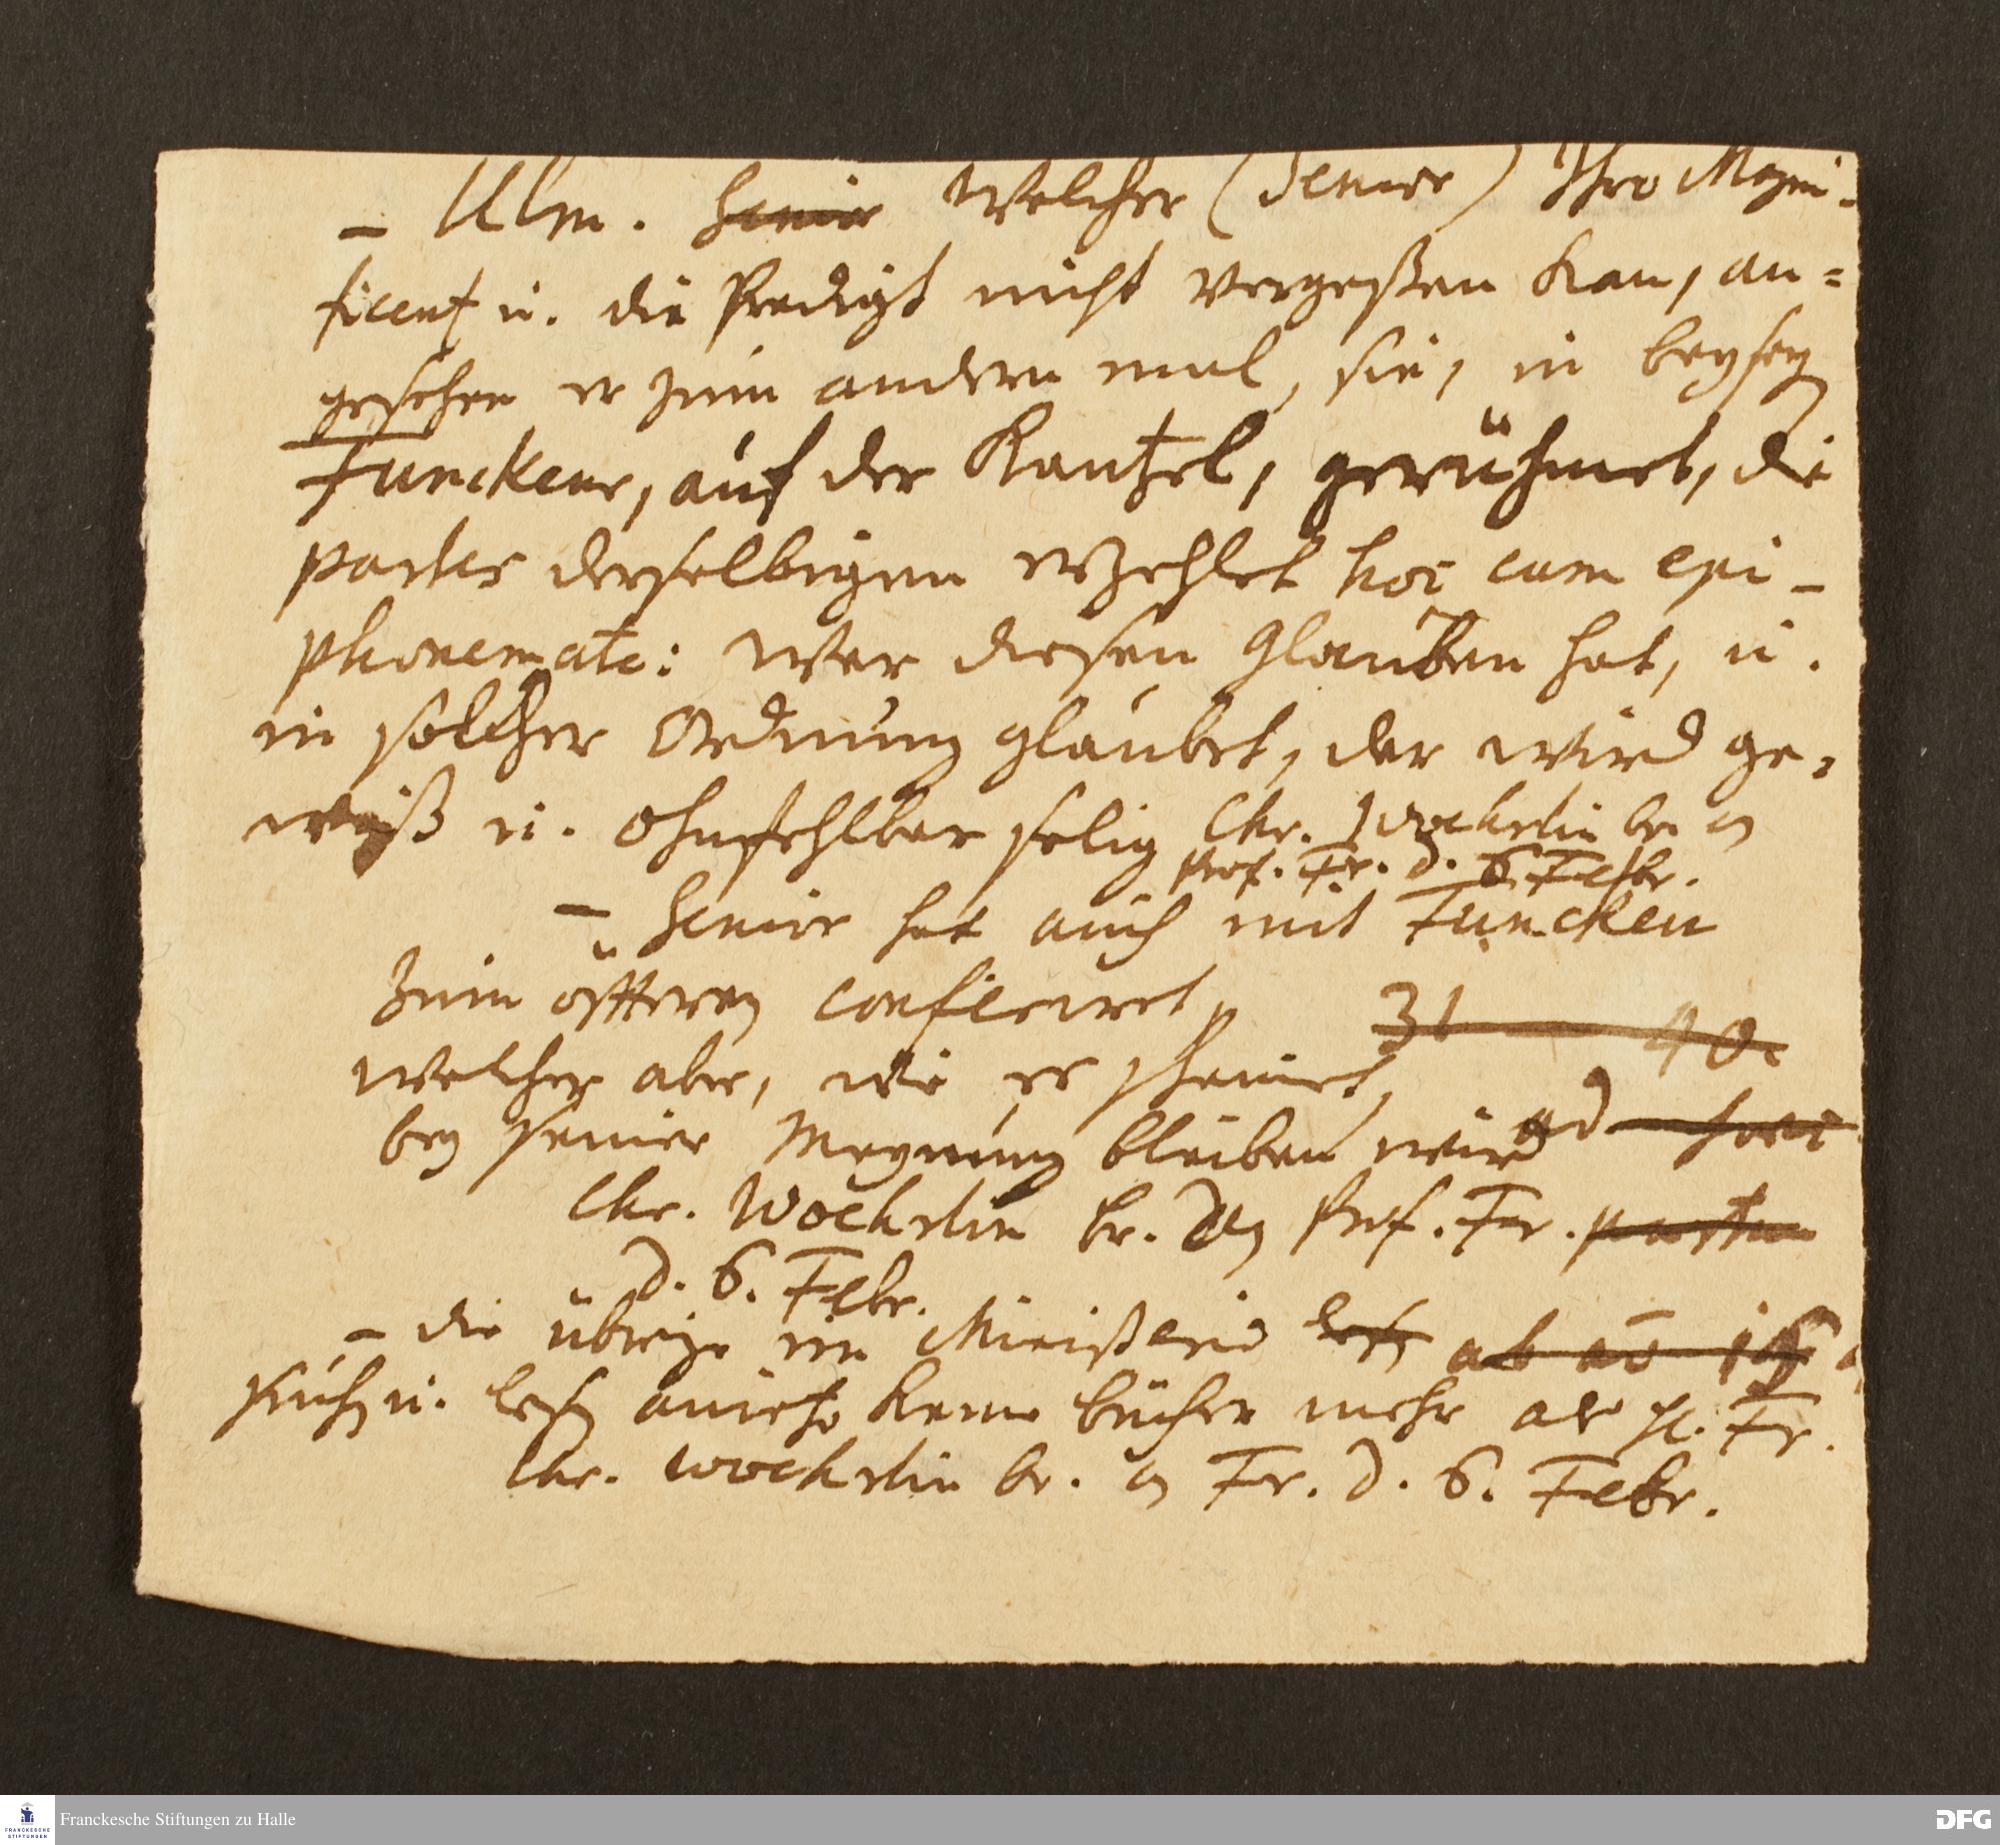 – Ulm. Senior Welcher (Senior) Ihro Magni-
ficenz u. die Predigt nicht vergeßen kan, an=
gesehen er zum andern mal, sie, in beysey
Funckens, auf der Kantzel, gerühmet, die
partes derselbigen erzehlet hoc cum epi-
phonemate: wer diesen Glauben hat, u.
in solcher Ordnung glaubet, der wird ge=
wiß u. ohnfehlbar selig Chr. Woehrlin br. an
Prof. Fr. d. 6. Febr.
– Senior hat auch mit Funcken
zum öfftern conferiret,
31 — 40.
welcher aber, wie es scheinet,
bey seiner Meynung bleiben wird
ad
Chr. Woehrlin br. an Prof. Fr.
d. 6. Febr.
– die übrige im Ministerio
ab
u. anietzo keine bücher mehr als H. Fr.
Chr. Woehrlin br. an Fr. d. 6. Febr.
Franckesche Stiftungen zu Halle
FRANCKESCHE
STIFTUNGEN
DFG